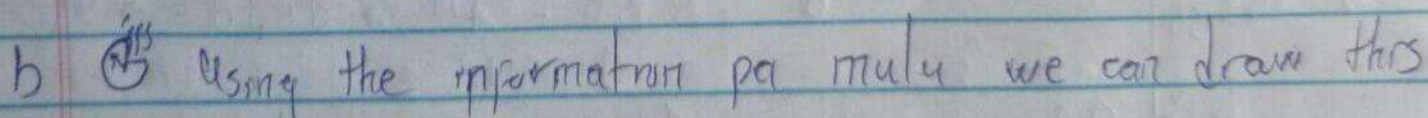 b Using the information pa mulu we can draw this